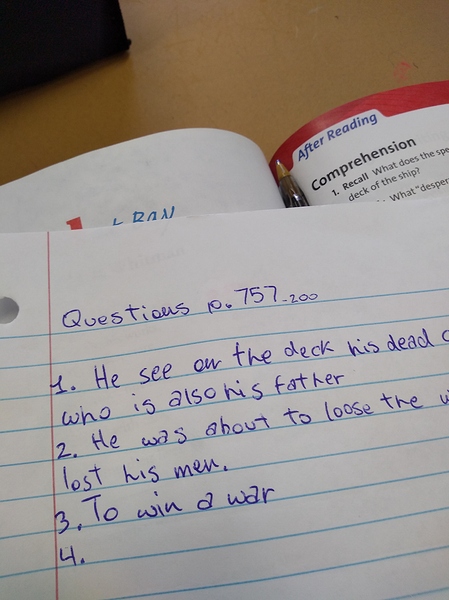 After Reading
Comprehension
1. Recall What does the
deck of the ship?
What "desper
Questions p. 757-200
1. He see on the deck his dead
who is also his father
2. He was about to loose the
lost his men.
3. To win a war
4.